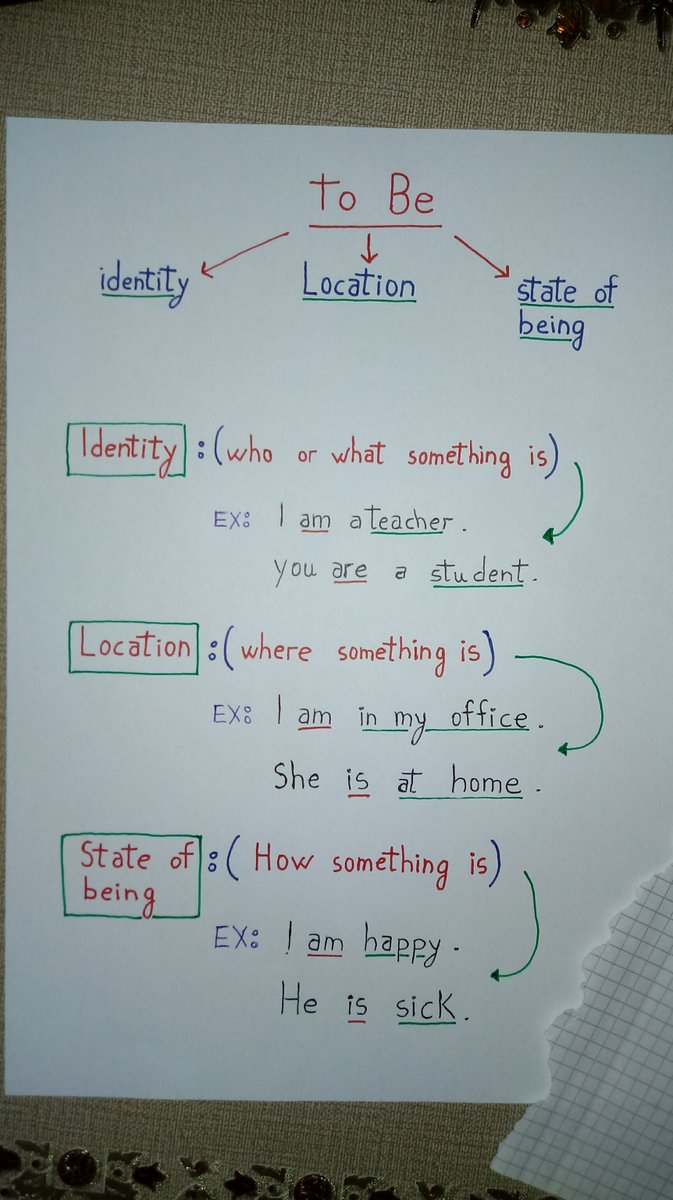 To Be
identity Location state of
being
Identity : (who or what something is)
EX: I am a teacher.
you are a student.
Location : (where something is)
EX: I am in my office.
She is at home.
State of : (How something is)
being
EX: I am happy.
He is sick.